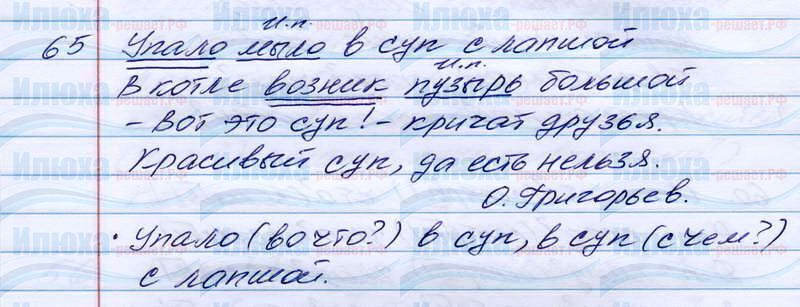 И.п.
65 Упало мыло в суп с лапшой
И.п.
В котле возник пузырь большой
- Вот это суп! - кричат друзья.
Красивый суп, да есть нельзя.
О. Григорьев.
· Упало (во что?) в суп, в суп (с чем?)
с лапшой.